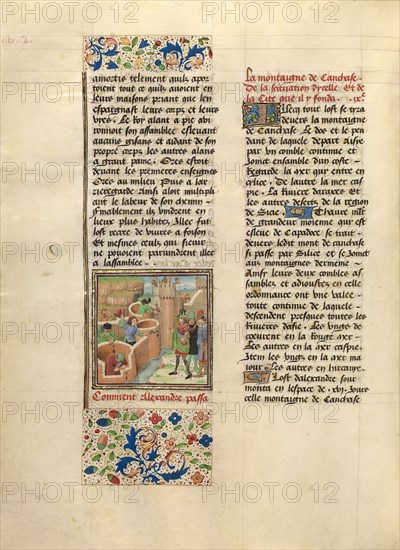 amortis telement quilz apor
toient tout ce quilz auoient en
leurs maisons priant que len
espargnast leurs corps et leurs
vies. Le Roy alant a pie abi
ronnoit son assamblee esleuant
aucuns gisans et aidant de son
propre corps les autres alans
a grant paine. Ores estoit
deuant les premieres enseignes
Ores au milieu Puis a lar
rieregarde Ainsi alant multipli
ant le labeur de son chemin
finablement ilz vindrent en
lieux plus habites Illec fut
lost recree de viures a foison
Et mesmes ceulx qui sieuir
ne pouoient paruindrent illec
a lassamblee.
Comment Alexandre passa
La montaigne de Canchase.
De la scituation dycelle Et de
la Cite que il y fonda. ixe.
Illecq tout lost se tra
deuers la montaigne
de Canchase Le dos et le pen
dant de laquelle depart Asie
par vn comble continue et
Joinct ensamble dun coste
Regarde la mer qui entre en
cilice. De lautre la mer cas
pie. La Riuiere daraxes et
les autres desers de la region
de Siae. Thaure mont
de grandeur moienne qui est
esleue de Capadoce se trait
deuers ledit mont de canchase
si passe par Silice et se Joinct
aux montaignes dermenie
Ainsi leurs deux combles as
samblez et adioustez en celle
ordonnance ont vne valee
toute continue de laquelle
descendent presques toutes les
Riuieres dasie. Les vnges de
coeurent en la Rouge mer
Les autres en la mer caspie
Item les vnges en la mer ma
iour Les autres en hircanye.
Lost dalexandre sour
monta en lespace de .xvij. Jours
celle montaigne de Canchase
PHOTO 12